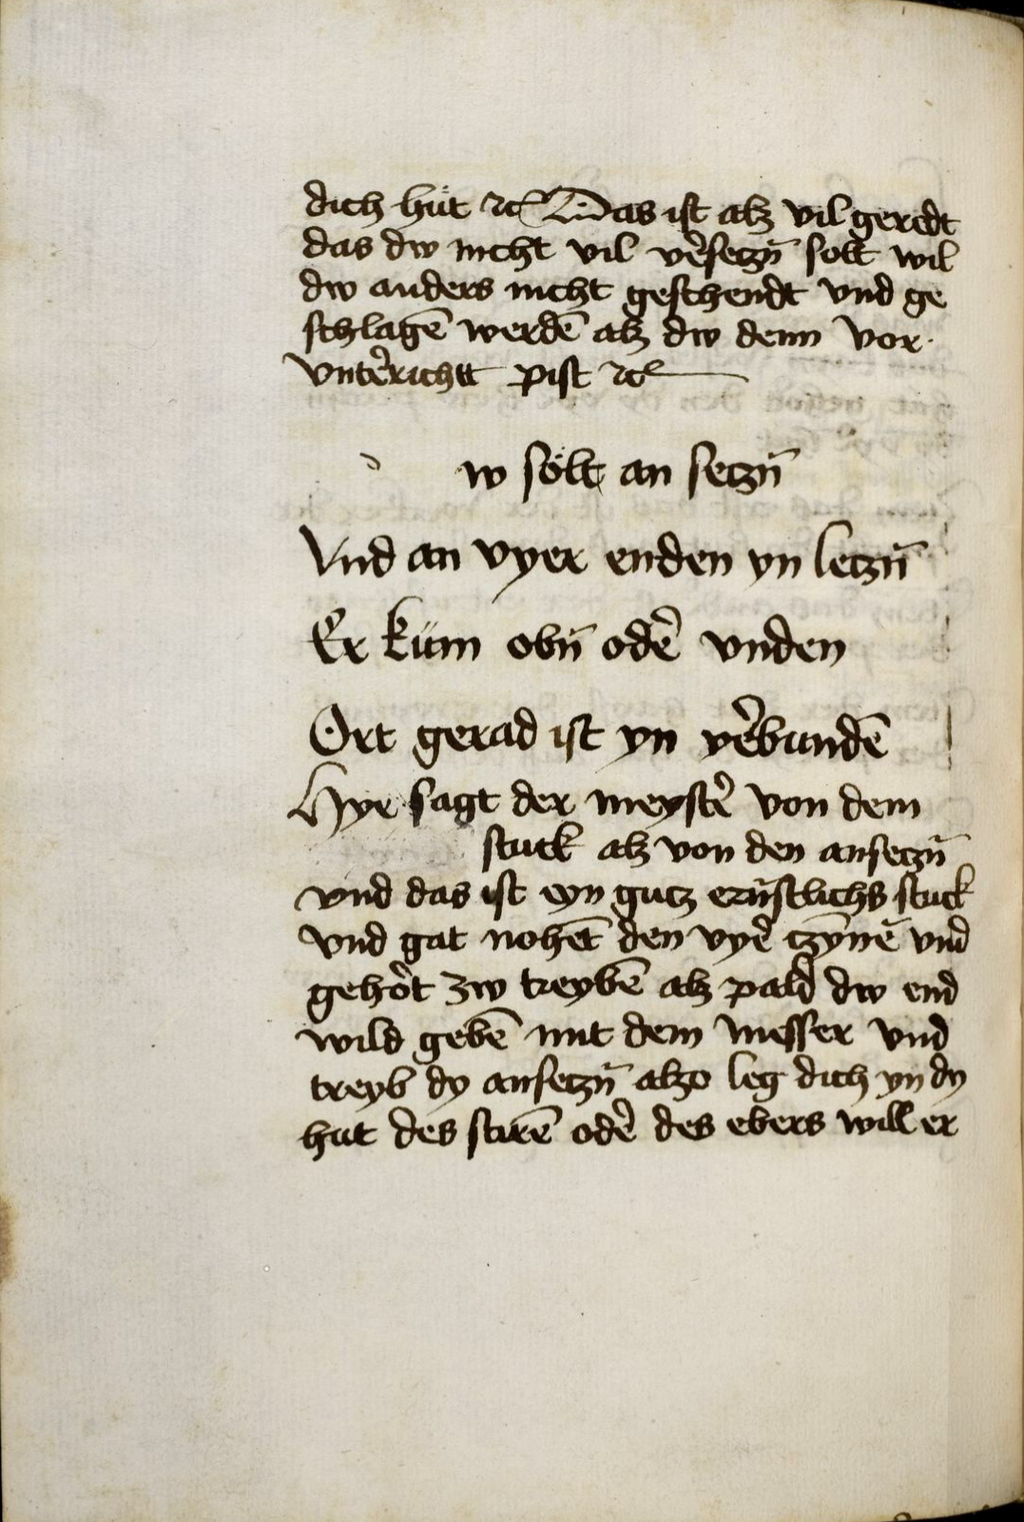 dich hüt ꝛc Das ist alz vil geredt
das dw nicht vil v̉seczn̄ solt wil
dw anders nicht geschendt vnd ge
schlagē werdē alz dw denn vor
vnter̉ichtt pist ꝛc
d w sölt an seczn̄
Vnd an vyer enden yn leczn̄
Er küm obn̄ oder̉ vnden
Ort gerad ist yn v̉bundē
Hye sagt der meyster̉ von dem
stuck alz von den anseczn̄
vnd das ist eyn gutz ernstlichs stuck
vnd gat nohet den vyer̉ czynnē vnd
gehört zw treybē alz pald dw end
wild gebē mit dem messer vnd
treyb dy anseczn̄ alzo leg dich yn dy
hut des stirē oder̉ des ebers will er